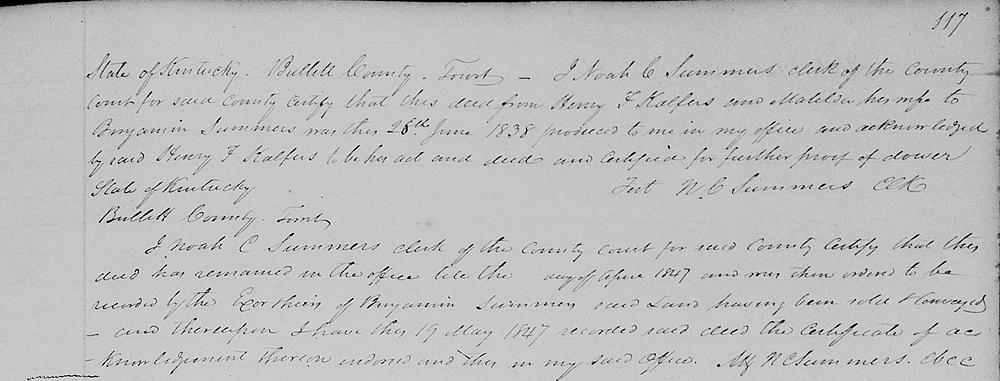 117
State of Kentucky. Bullitt County. Towit – I Noah C Summers clerk of the County
Court for said county certify that this deed from Henry F Kalfers and Matilda his wife to
Benjamin Summers was this 28th June 1838 produced to me in my office and acknowledged
by said Henry F Kalfers to be his act and deed and certified for further proof of dower
State of Kentucky Test N. C Summers Clk
Bullitt County. Towit
I Noah C Summers clerk of the County court for said County certify that this
deed has remained in the office till the day of April 1847 and was then ordered to be
recorded by the Exor & heirs of Benjamin Summers said Land having been sold & Conveyed
– and thereupon I have this 19 May 1847 recorded said deed the certificate of ac
knowledgement thereon endorsed and this in my said office. Att N C Summers. cbcc